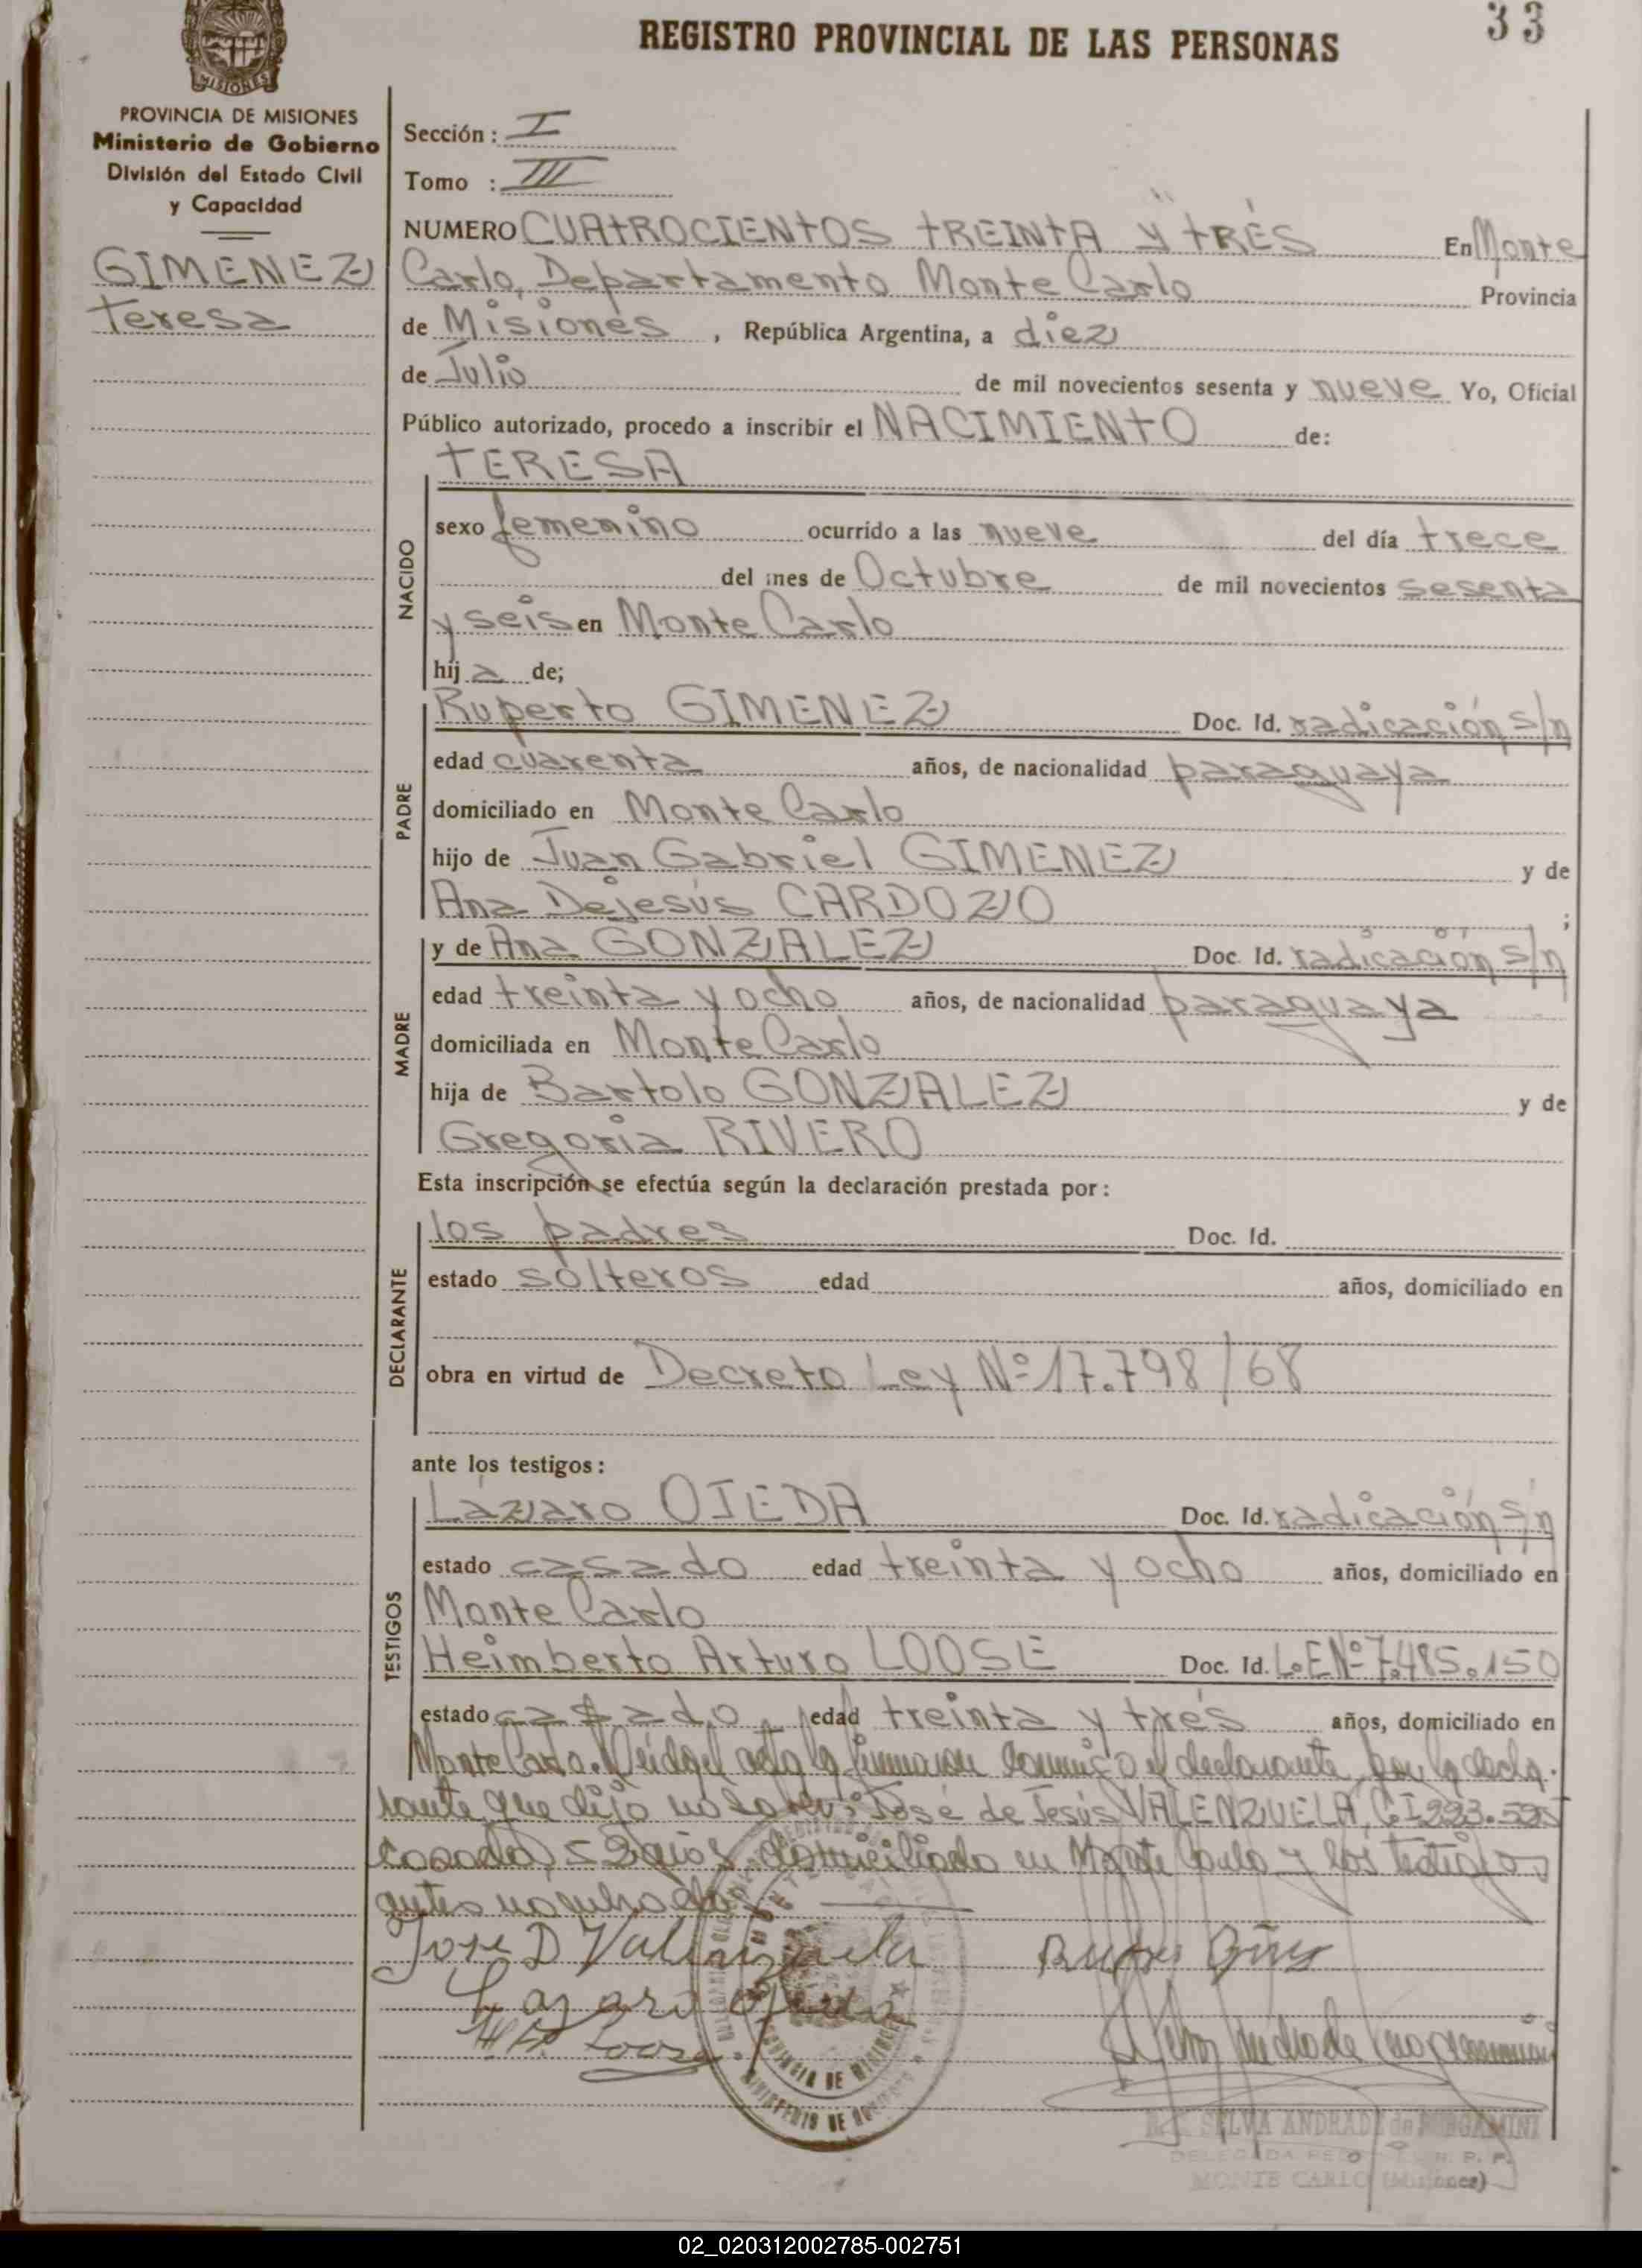 REGISTRO PROVINCIAL DE LAS PERSONAS
33
MISIONES
PROVINCIA DE MISIONES
Ministerio de Gobierno
División del Estado Civil
y Capacidad
GIMENEZ
Teresa
Sección: I
Tomo : III
NUMERO CUATROCIENTOS TREINTA Y TRES En Monte
Carlo, Departamento Monte Carlo Provincia
de Misiones, República Argentina, a diez
de Julio de mil novecientos sesenta y nueve Yo, Oficial
Público autorizado, procedo a inscribir el NACIMIENTO de:
NACIDO
TERESA
sexo femenino ocurrido a las nueve del día trece
del mes de Octubre de mil novecientos sesenta
y seis en Monte Carlo
hija de;
PADRE
Ruperto GIMENEZ Doc. Id. radicación s/n
edad cuarenta años, de nacionalidad paraguaya
domiciliado en Monte Carlo
hijo de Juan Gabriel GIMENEZ y de
Ana Dejesús CARDOZO ;
MADRE
y de Ana GONZALEZ Doc. Id. radicación s/n
edad treinta y ocho años, de nacionalidad paraguaya
domiciliada en Monte Carlo
hija de Bartolo GONZALEZ y de
Gregoria RIVERO
Esta inscripción se efectúa según la declaración prestada por:
DECLARANTE
los padres Doc. Id.
estado solteros edad años, domiciliado en
obra en virtud de Decreto Ley Nº 17.798/68
ante los testigos:
TESTIGOS
Lázaro OJEDA Doc. Id. radicación s/n
estado casado edad treinta y ocho años, domiciliado en
Monte Carlo
Heimberto Arturo LOOSE Doc. Id. L.E Nº 7.485.150
estado casado, edad treinta y tres años, domiciliado en
Monte Carlo. Leída el acta la firmaron conmigo el declarante, por la decla-
rante que dijo no saber: José de Jesús VALENZUELA, C I 223.595
casado, 52 años, domiciliado en Monte Carlo y los testigos
antes nombrados
José D Valenzuela
Lazaro Ojeda
Loose
PROVINCIA DE MISIONES
MINISTERIO DE
SELVA ANDRADE de BERGAMINI
DELEGADA
MONTE CARLO (Misiones)
02_020312002785-002751